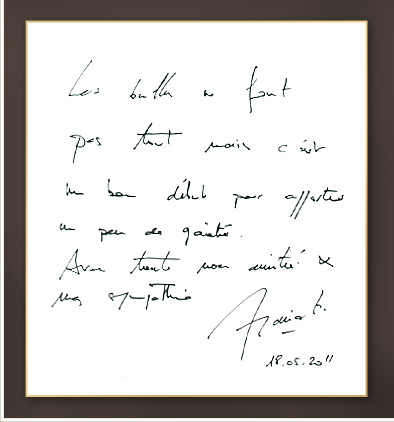 Les bulles ne font
pas tout mais c'est
un bon début pour apporter
un peu de gaieté.
Avec toute mon amitié &
ma sympathie
18.05.2011